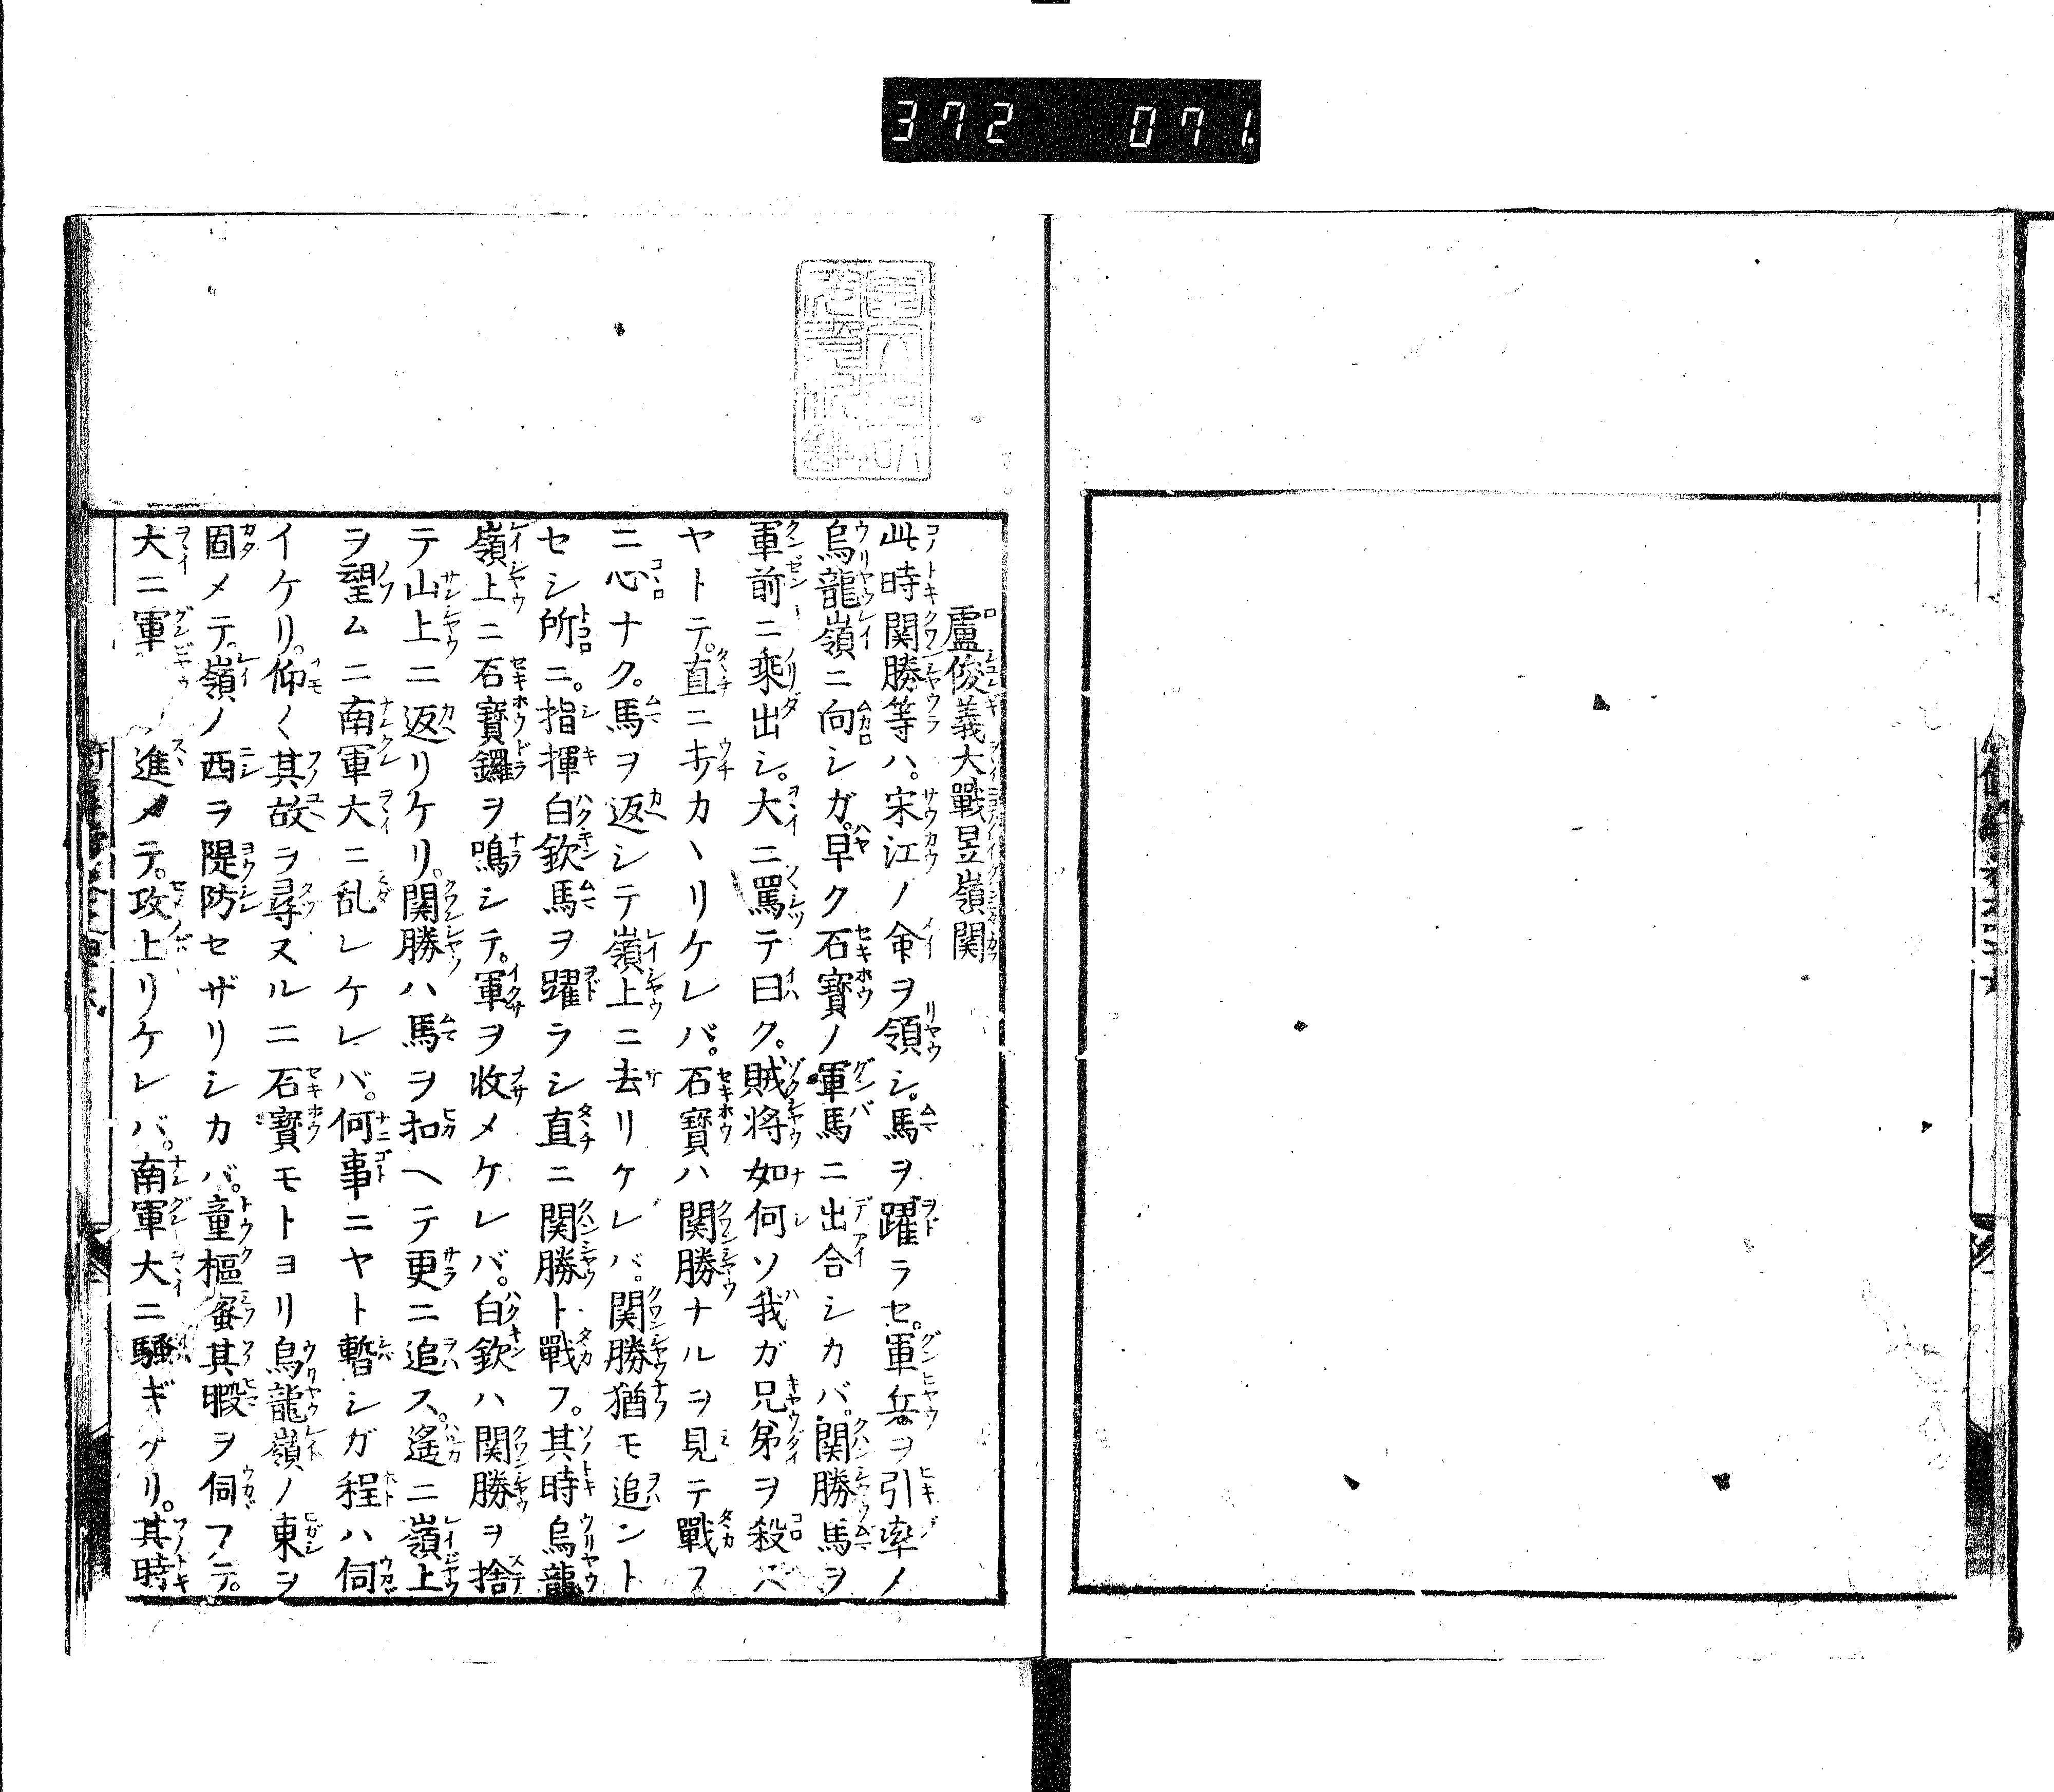 372 071
盧俊義大戰昱嶺関
此時関勝等ハ宋江ノ命ヲ領シ。馬ヲ躍ラセ。軍兵ヲ引率ノ
烏龍嶺ニ向シガ。早ク石寳ノ軍馬ニ出合シカバ。関勝馬ヲ
軍前ニ乗出シ。大ニ罵テ曰ク。賊将如何ソ我ガ兄弟ヲ殺ベ
ヤトテ。直ニ打カヽリケレバ。石寳ハ関勝ナルヲ見テ戰フ
ニ心ナク。馬ヲ返シテ嶺上ニ去リケレバ。関勝猶モ追ント
セシ所ニ。指揮白欽馬ヲ躍ラシ直ニ関勝ト戰フ。其時烏龍
嶺上ニ石寳鑼ヲ鳴シテ。軍ヲ收メケレバ。白欽ハ関勝ヲ捨
テ山上ニ返リケリ。関勝ハ馬ヲ扣ヘテ更ニ追ス。遙ニ嶺上
ヲ望ムニ南軍大ニ乱レケレバ。何事ニヤト暫シガ程ハ伺
イケリ。仰〱其故ヲ尋ヌルニ石寳モトヨリ烏龍嶺ノ東ヲ
固メテ。嶺ノ西ヲ隄防セザリシカバ。童樞蜜其暇ヲ伺フテ。
大ニ軍 進メテ。攻上リケレバ。南軍大ニ騒ギケリ。其時